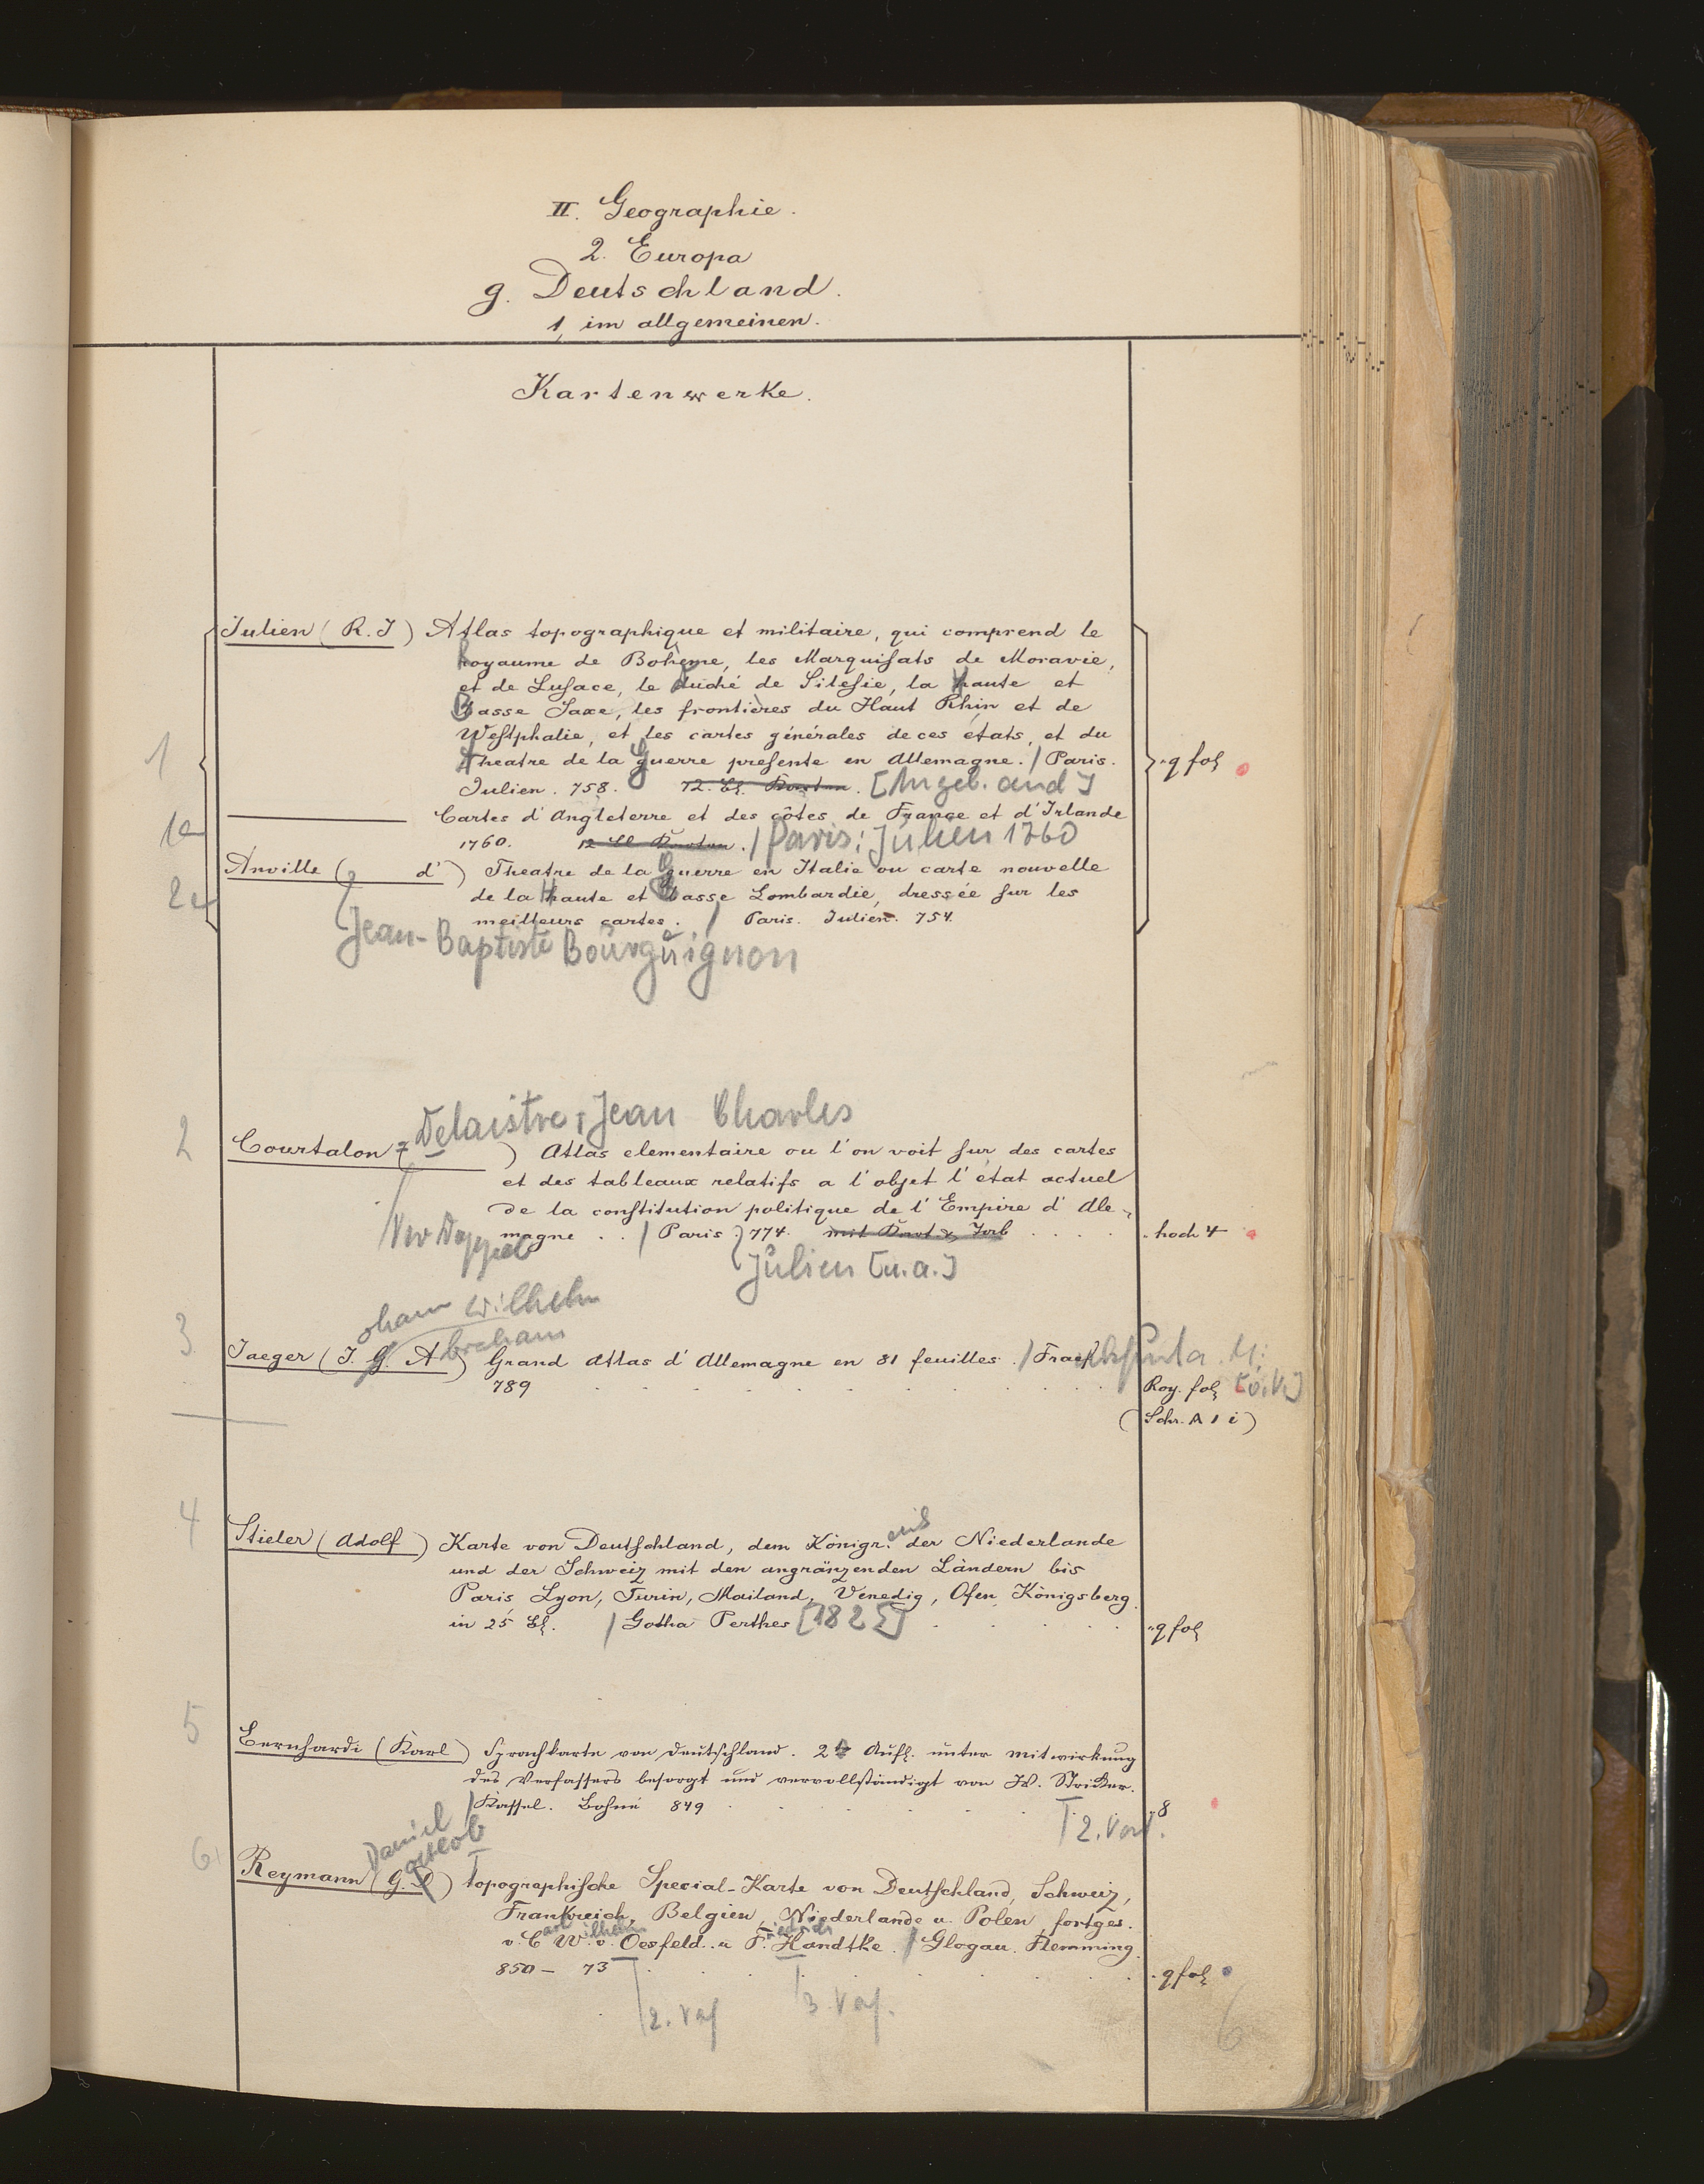 II. Geographie.
2. Europa
g. Deutschland.
1, im allgemeinen.
Kartenwerke.
Julien (R. J) Atlas topographique et militaire, qui comprend le
Royaume de Bohême, les Marquisats de Moravie,
et de Lusace, le duché de Silesie, la Haute et
Basse Saxe, les frontières du Haut Rhin et de
Westphalie, et les cartes générales de ces états, et du
1 Theatre de la Guerre presente en Allemagne. / Paris. q fol
Julien. 758. 12. Bl. Karten. [Angeb. and]
1a Cartes d'Angleterre et des côtes de France et d'Irlande
1760. 12 Bl Karten. / Paris: Julien 1760
Anville ( d') Theatre de la Guerre en Italie ou carte nouvelle
2a de la Haute et Basse Lombardie, dressée sur les
meilleurs cartes. / Paris. Julien. 754.
Jean-Baptiste Bourguignon
Delaistre, Jean Charles
2 Courtalon ) Atlas elementaire ou l'on voit sur des cartes
et des tableaux relatifs a l'objet l'état actuel
de la constitution politique de l'Empire d'Ale-
magne . . / Paris 774. mit . . . . hoch 4
Julien [u.a.]
ohann Wilhelm
braham
3 Jaeger (J. G. A) Grand Atlas d'Allemagne en 81 feuilles. / Frankf
789 Roy. fol
(Schr. A 1 i)
4 Stieler (Adolf) Karte von Deutschland, dem Königr. der Niederlande
und der Schweiz mit den angränzenden Ländern bis
Paris Lyon, Turin, Mailand, Venedig, Ofen, Königsberg.
in 25 Bl. / Gotha Perthes [1825] q fol
5 Bernhardi (Karl) Sprachkarte von Deutschland. 2 Aufl. unter Mitwirkung
des Verfassers besorgt und vervollständigt von W. Stricker.
/ Kassel. Bohné 849 8
2. Verf.
Daniel
ottlob
6 Reymann (G. D) Topographische Special-Karte von Deutschland, Schweiz,
Frankreich, Belgien, Niederlande u. Polen, fortges.
arl ilhelm riedrich
v. C W. v. Oesfeld. u F. Handtke. / Glogau. Flemming.
850 - 73 q fol
2. Vf 3. Vf.
6